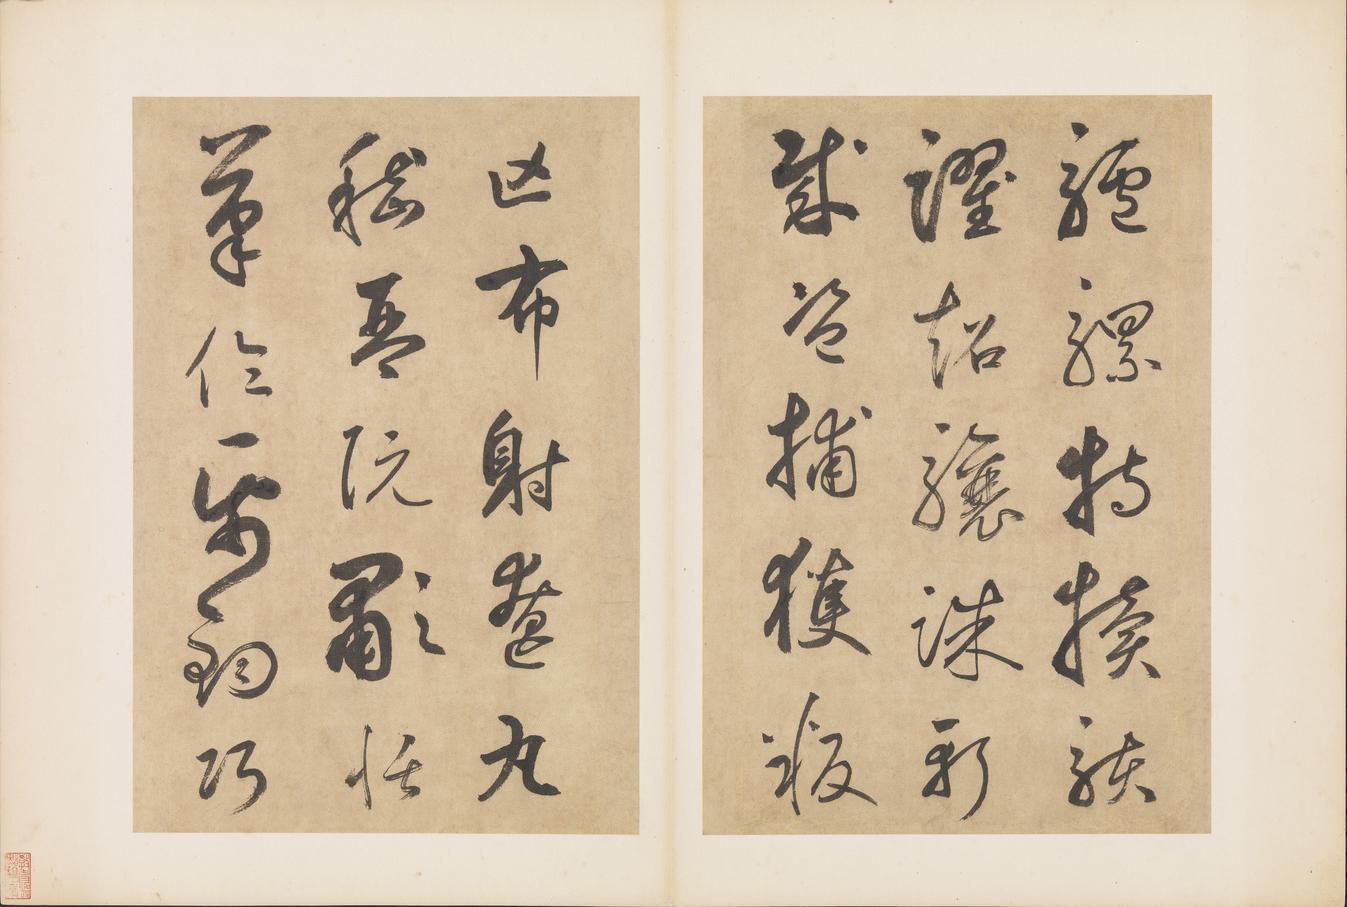 驢騾特犢駭
躍超驤誅斬
賊盜捕獲叛
亾布射遼丸
嵇琴阮歗恬
筆倫紙鈞巧